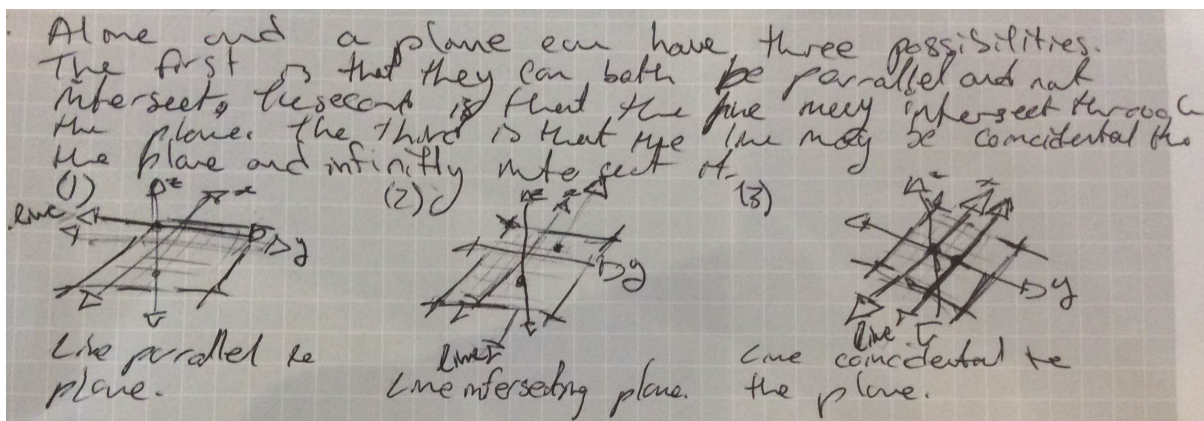 A line and a plane can have three possibilities.
The first is that they can both be parrallel and not
intersect. The second is that the line may intersect through
the plane. The third is that the line may be coincidental to
the plane and infinitly intersect it.
(1) (2) (3)
z x z x z x
line y y y
line line
Line parrallel to
plane.
Line intersecting plane.
Line coincidental to
the plane.